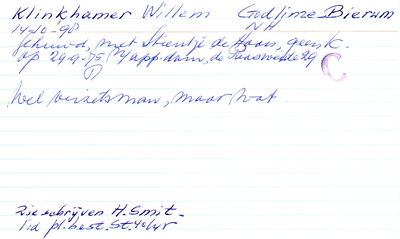 Klinkhamer Willem Godlinze Bierum
14-10-98 NH
gehuwd, met Stientje de Haan, geen k.
op 29-9-75 app.dam, de 29
C
Wel verzetsman, maar wat
Zie schrijven H. Smit.
lid pl. best. St. 40/45